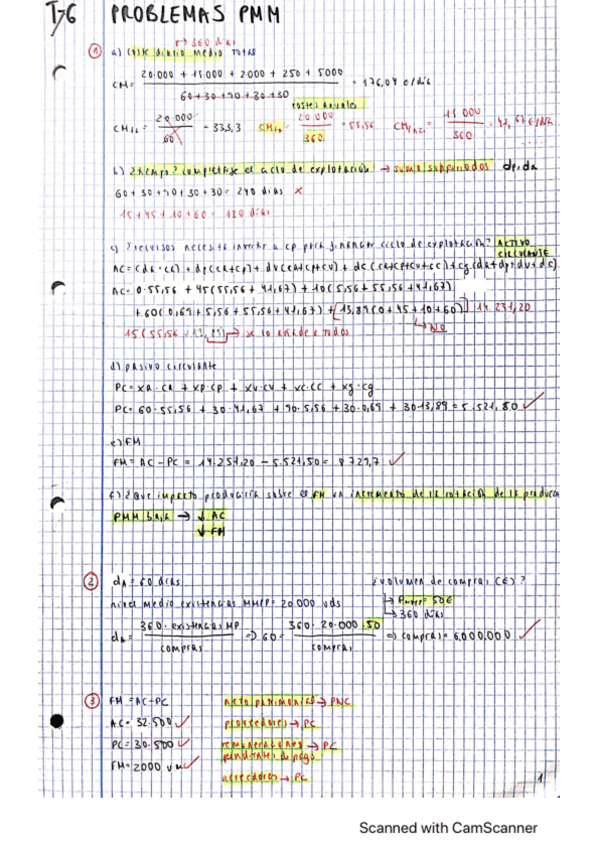 T-6 PROBLEMAS PMM
→ 360 días
① a) Coste diario medio total
CM = 20.000 + 15.000 + 2000 + 250 + 5000 / 60+30+90+30+30 = 176,04 €/día
costes anuales
CM = 20.000 / 60 = 333,3 CM = 20.000 / 360 = 55,56 CM = 15.000 / 360 = 41,67 €/día
b) ¿tiempo? completarse el ciclo de explotación → suma subperiodos
60 + 30 + 90 + 30 + 30 = 240 días ×
15 + 45 + 10 + 60 = 130 días
c) ¿recursos necesita invertir a cp para financiar ciclo de explotación? ACTIVO CIRCULANTE
AC = (da · ca) + dp(ca+cp) + dv(ca+cp+cv) + dc(ca+cp+cv+cc) + cg(da+dp+dv+dc)
AC = 0·55,56 + 45(55,56 + 41,67) + 10(5,56 + 55,56 + 41,67)
+ 60(0,69 + 5,56 + 55,56 + 41,67) + [13,89(0 + 45 + 10 + 60)] 14.251,20
15(55,56 + 13,89) → se lo añade a todos → No
d) pasivo circulante
PC = xa·ca + xp·cp + xv·cv + xc·cc + xg·cg
PC = 60·55,56 + 30·41,67 + 90·5,56 + 30·0,69 + 30·13,89 = 5.521,50
e) FM
FM = AC - PC = 14.251,20 - 5.521,50 = 8729,7
f) ¿Qué impacto produciría sobre el FM un incremento de la rotación de la
PMM baja → ↓ AC
↓ FM
② dA = 60 días ¿volumen de compras (€)?
nivel medio existencias MMPP = 20.000 uds → Pmmpp = 50€
→ 360 días
dA = 360 · existencias MP / compras ⇒ 60 = 360 · 20.000 · 50 / compras ⇒ compras = 6.000.000
③ FM = AC - PC neto patrimonial → PNC
AC = 32.500 proveedores → PC
PC = 30.500 remuneraciones pendientes de pago → PC
FM = 2000 u.m. acreedores → PC
1
Scanned with CamScanner